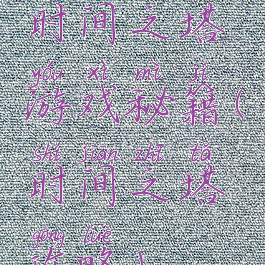 时间之塔
yóu xì mì jí
游戏秘籍(
shí jiān zhī tǎ
时间之塔
gōng lüè
攻略)